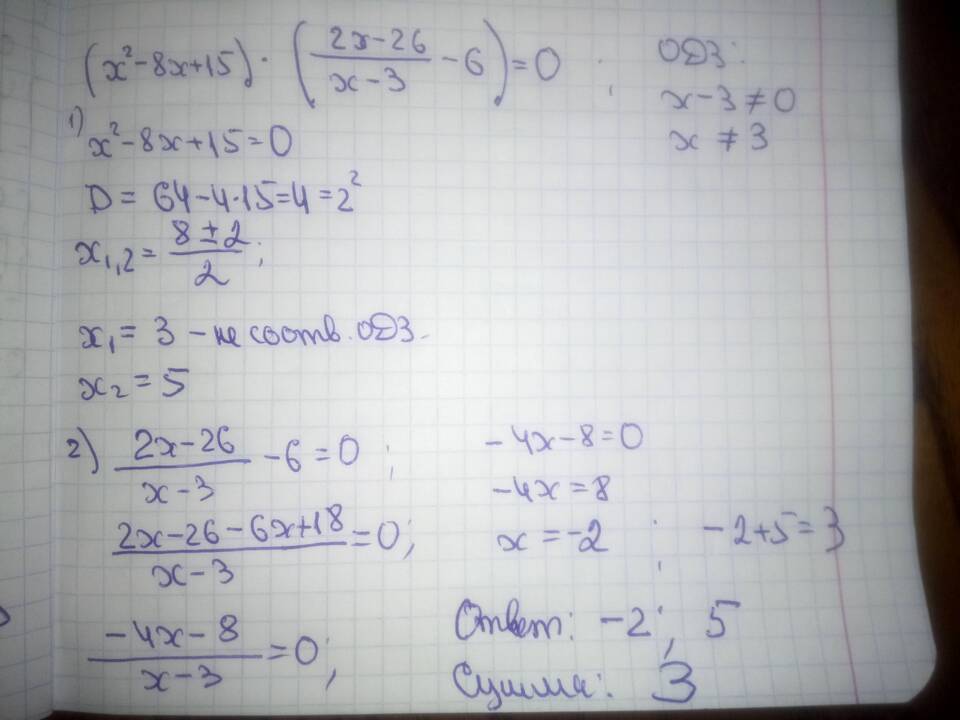 (x²-8x+15)·((2x-26)/(x-3) - 6)=0 ; ОДЗ:
x-3≠0
x ≠ 3
1) x²-8x+15=0
D = 64-4·15=4=2²
x₁,₂ = (8±2)/2 ;
x₁ = 3 - не соотв. ОДЗ.
x₂ = 5
2) (2x-26)/(x-3) - 6 = 0 ;
(2x-26-6x+18)/(x-3) = 0;
(-4x-8)/(x-3) = 0;
-4x-8=0
-4x=8
x = -2 ; -2+5=3
Ответ: -2; 5
Сумма: 3